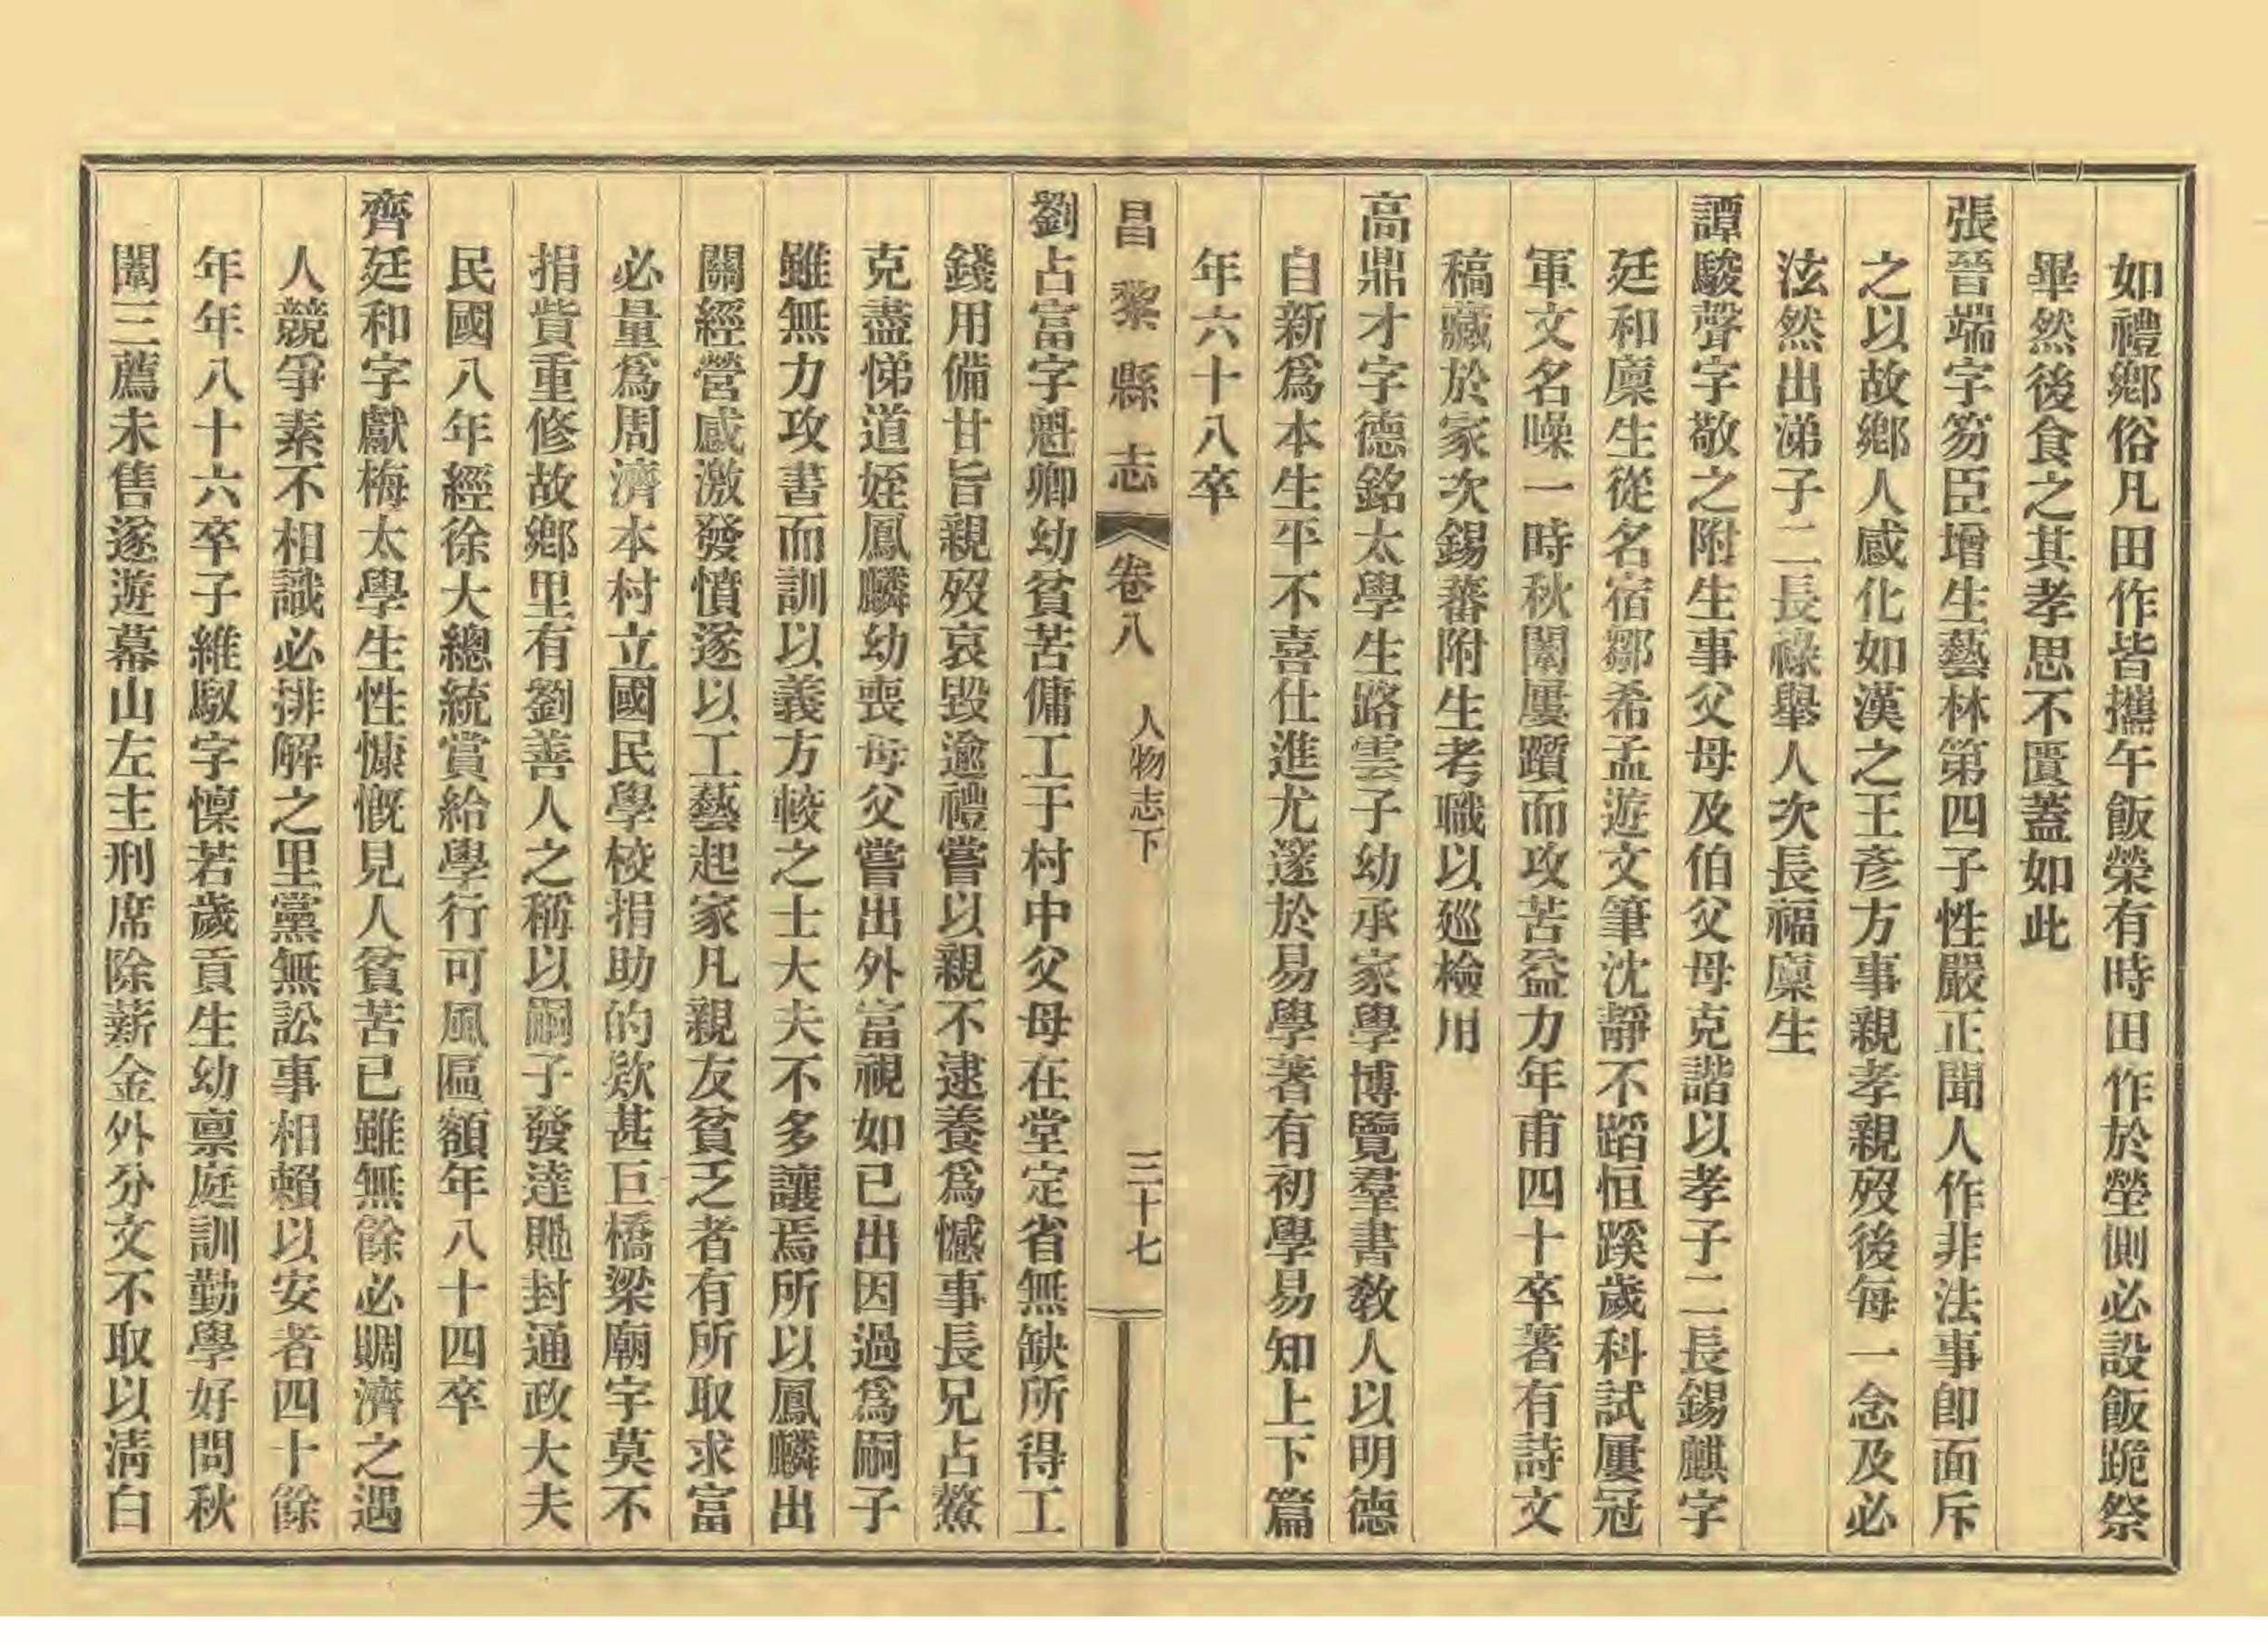 如禮鄉俗凡田作皆攜午飯榮有時田作於塋側必設飯跪祭
畢然後食之其孝思不匱蓋如此
張晉端字笏臣增生藝林第四子性嚴正聞人作非法事卽面斥
之以故鄉人感化如漢之王彥方事親孝親歿後每一念及必
泫然出涕子二長祿舉人次長福廩生
譚駿聲字敬之附生事父母及伯父母克諧以孝子二長錫麒字
廷和廩生從名宿鄒希孟遊文筆沈靜不蹈恒蹊歲科試屢冠
軍文名噪一時秋闈屢躓而攻苦益力年甫四十卒著有詩文
稿藏於家次錫蕃附生考職以巡檢用
高鼎才字德銘太學生路雲子幼承家學博覽羣書教人以明德
自新爲本生平不喜仕進尤邃於易學著有初學易知上下篇
年六十八卒
昌黎縣志 卷八 人物志下 三十七
劉占富字魁卿幼貧苦傭工于村中父母在堂定省無缺所得工
錢用備甘旨親歿哀毀逾禮嘗以親不逮養爲憾事長兄占鰲
克盡悌道姪鳳麟幼喪母父嘗出外富視如己出因過爲嗣子
雖無力攻書而訓以義方較之士大夫不多讓焉所以鳳麟出
關經營感激發憤遂以工藝起家凡親友貧乏者有所取求富
必量爲周濟本村立國民學校捐助的欵甚巨橋梁廟宇莫不
捐貲重修故鄉里有劉善人之稱以嗣子發達貤封通政大夫
民國八年經徐大總統賞給學行可風匾額年八十四卒
齊廷和字獻梅太學生性慷慨見人貧苦己雖無餘必賙濟之遇
人競爭素不相識必排解之里黨無訟事相賴以安者四十餘
年年八十六卒子維馭字懍若歲貢生幼稟庭訓勤學好問秋
闈三薦未售遂遊幕山左主刑席除薪金外分文不取以淸白